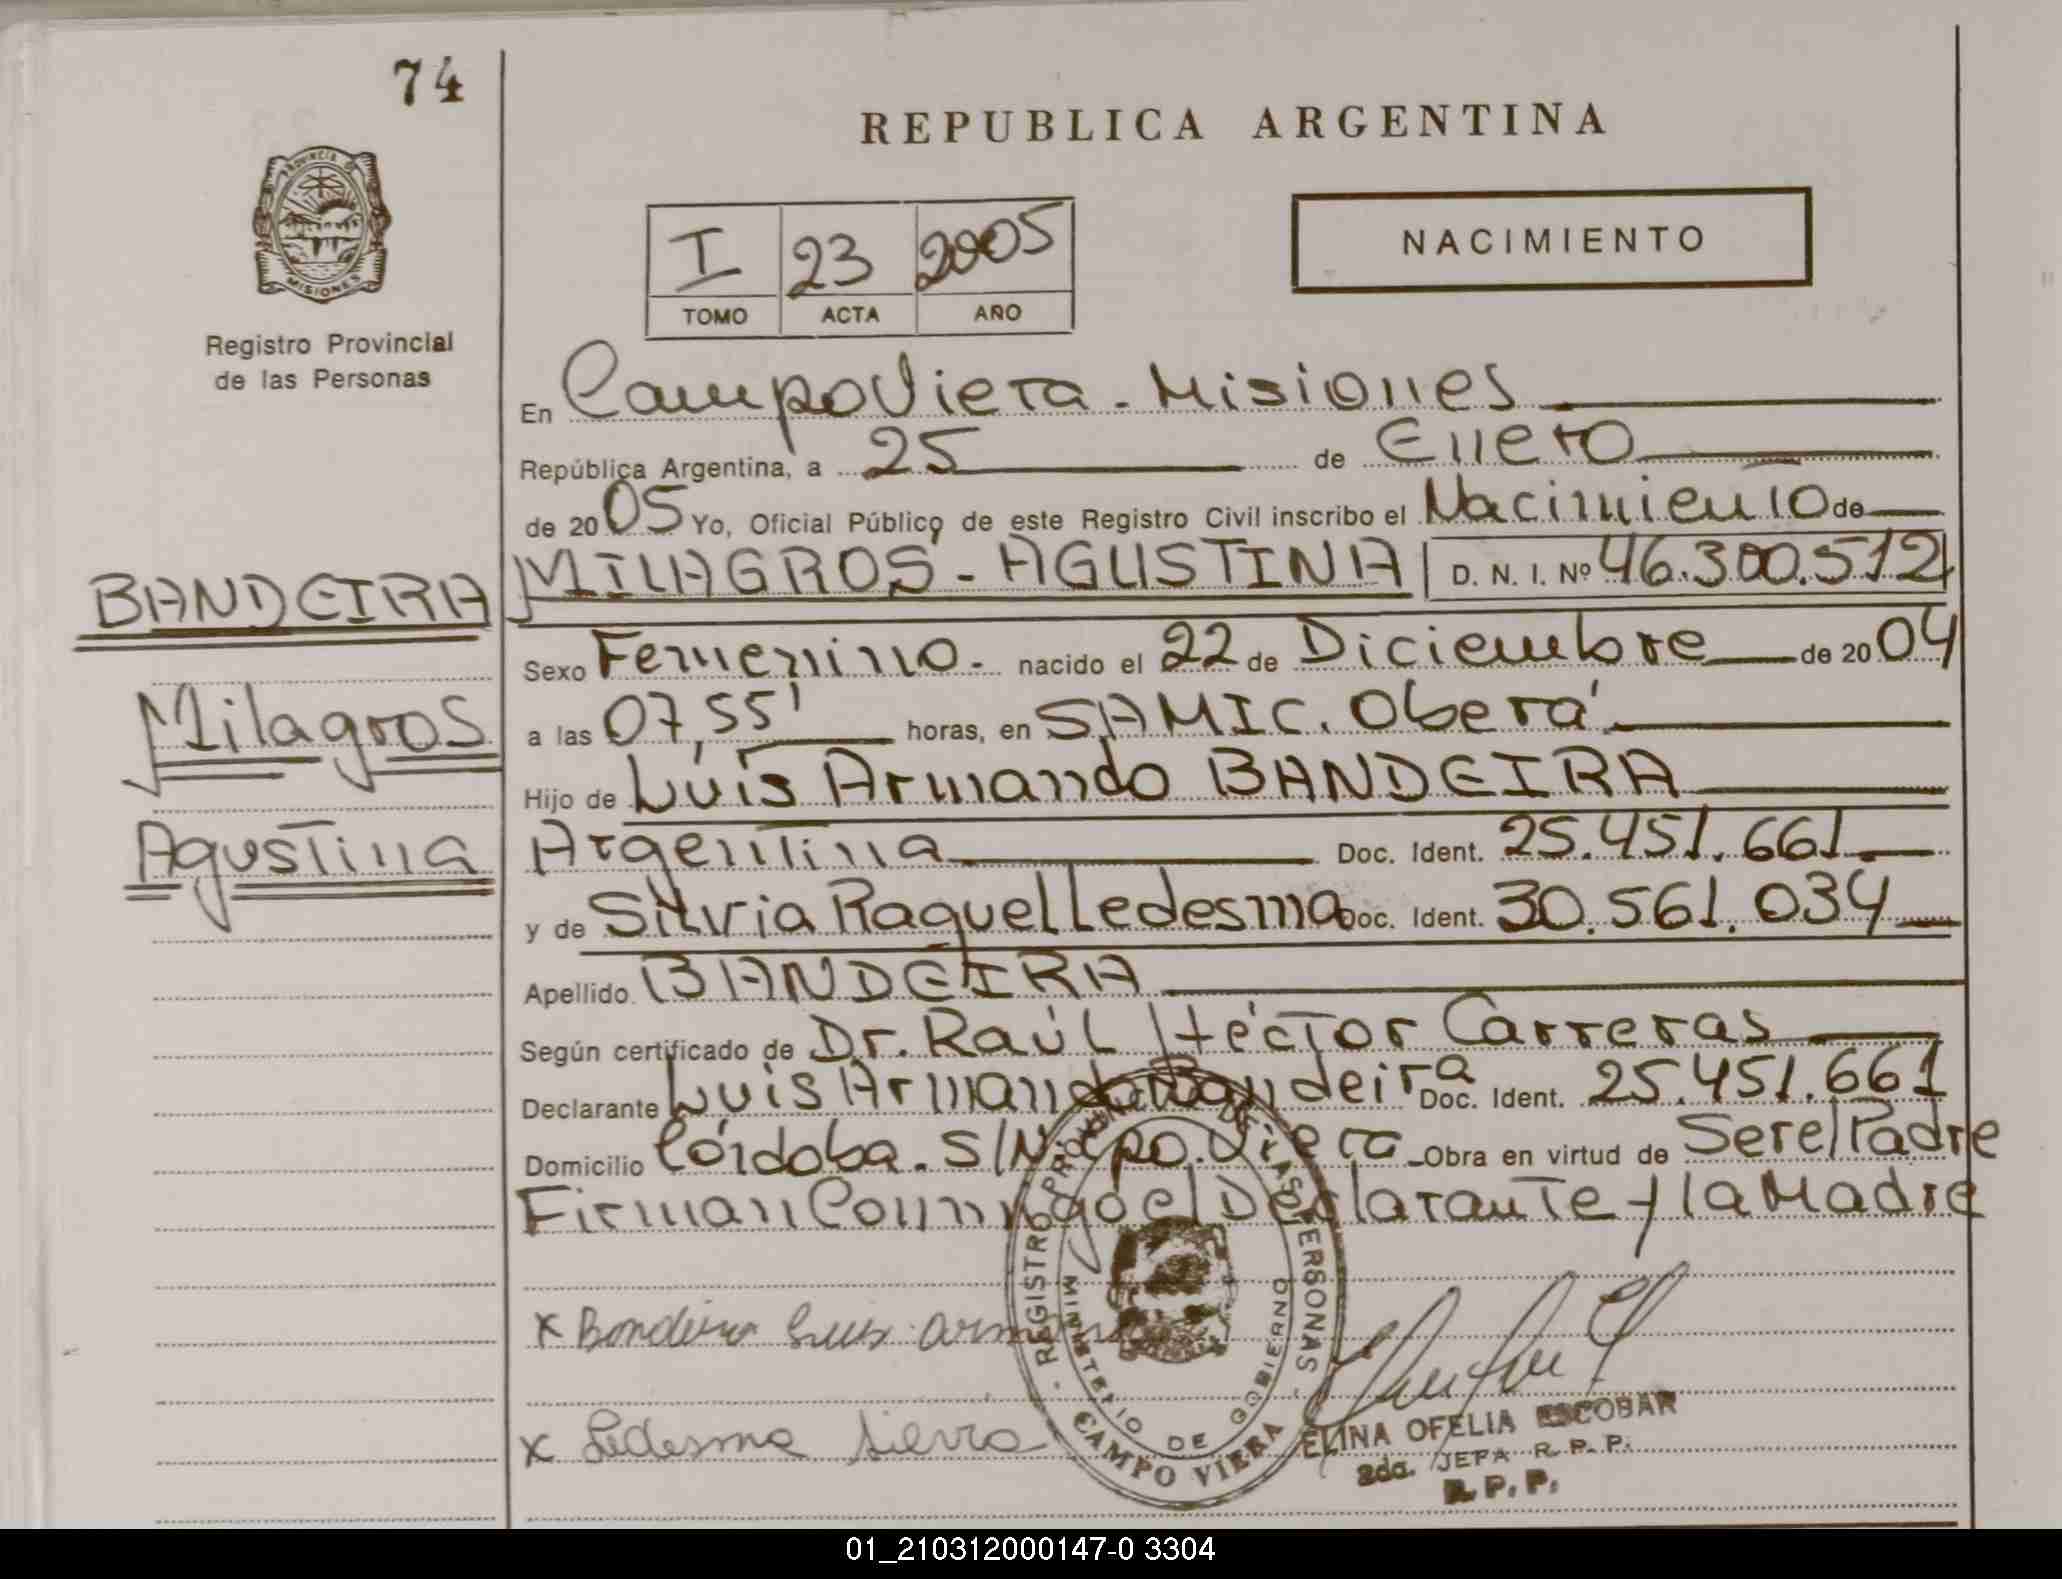 74
REPUBLICA ARGENTINA
PROVINCIA DE
MISIONES
Registro Provincial
de las Personas
I 23 2005
TOMO ACTA AÑO
NACIMIENTO
En Campo Viera - Misiones
República Argentina, a 25 de Enero
de 2005 Yo, Oficial Público de este Registro Civil inscribo el Nacimiento de
BANDEIRA
MILAGROS - AGUSTINA D. N. I. Nº 46.300.512
Sexo Femenino.- nacido el 22 de Diciembre de 2004
Milagros
a las 07,55' horas, en SAMIC. Oberá
Hijo de Luis Armando BANDEIRA
Agustina
Argentina Doc. Ident. 25.451.661
y de Silvia Raquel Ledesma Doc. Ident. 30.561.034
Apellido BANDEIRA
Según certificado de Dr. Raúl Héctor Carreras
Declarante Luis Armando Bandeira Doc. Ident. 25.451.661
Domicilio Córdoba. S/N cpo. Viera Obra en virtud de Ser el Padre
Firman Conmigo el Declarante y la Madre
x Bandeira Luis Armando
x Ledesma Silvia
REGISTRO PROVINCIAL DE LAS PERSONAS
MINISTERIO DE GOBIERNO
CAMPO VIERA
ELINA OFELIA ESCOBAR
2da. JEFA R. P. P.
R. P. P.
01_210312000147-0 3304